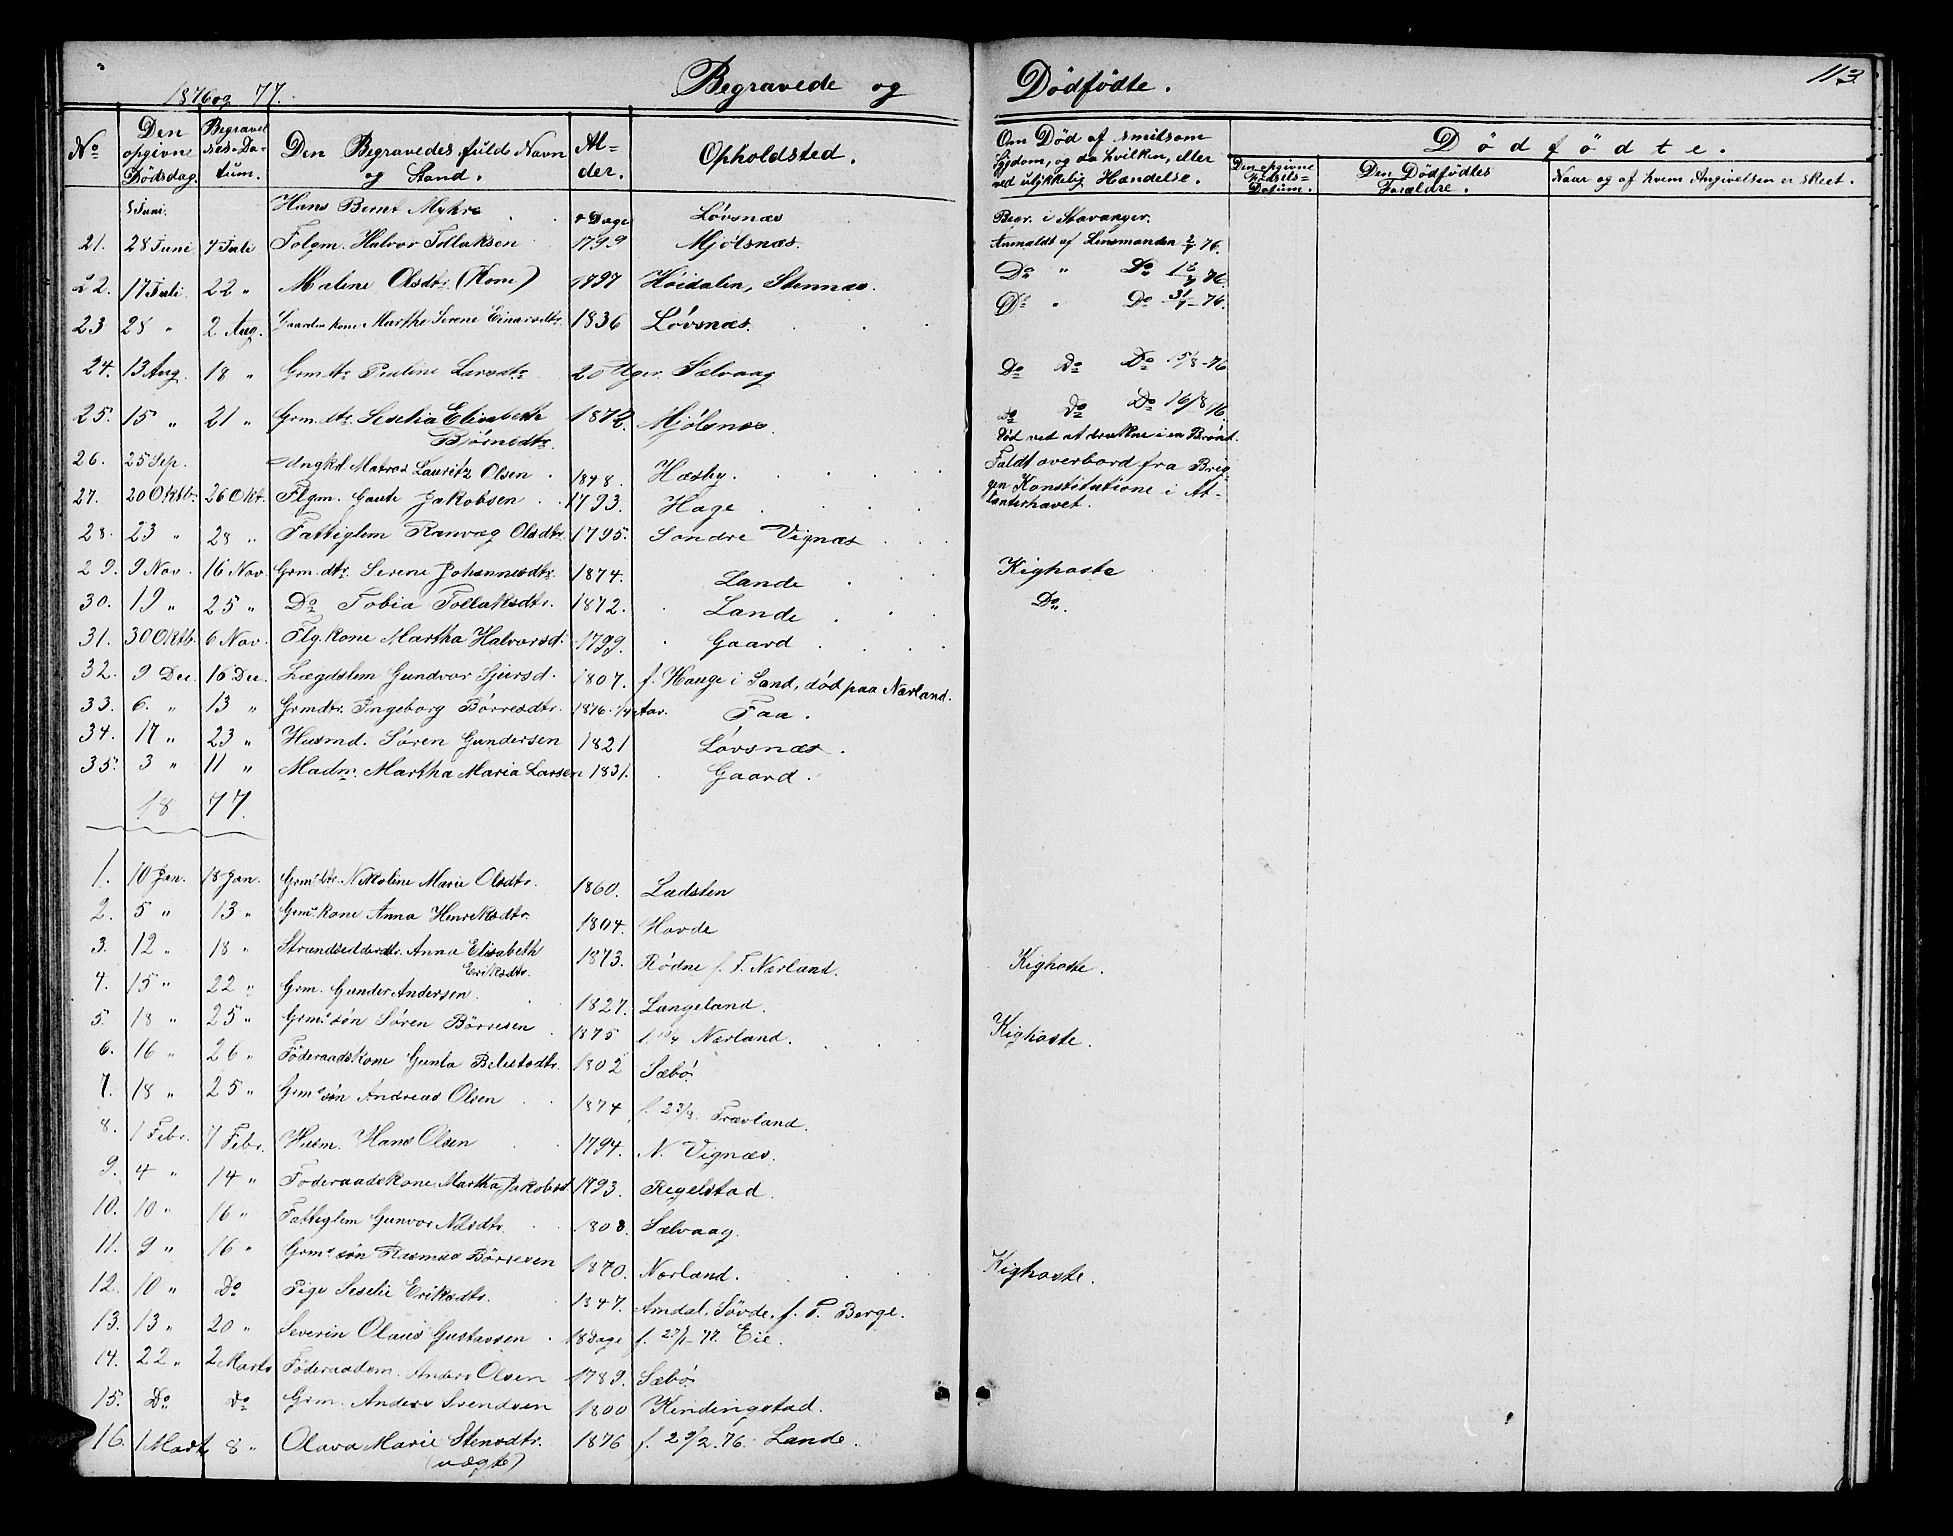 1876 og 77.
Begravede og Dödfödte.
113
No
Den opgivne Dödsdag.
Begravelses-Datum.
Den Begravedes fulde Navn og Stand.
Alder.
Opholdsted.
Om Död af smitsom Sygdom, og da hvilken, eller ved ulykkelig Hændelse.
Dödfödte.
Den opgivne Födsels-Datum.
Den Dödfödtes Forældre.
Naar og af hvem Angivelsen er skeet.
Juni. Hans Bernt Myhre Dage Lövsnæs Begr. i Stavanger.
21. 28 Juni 7 Juli Folgm. Halvor Tollaksen 1799 Mjölsnæs. Anmeldt af Lensmanden 76.
22. 17 Juli 22 " Malene Olsdtr. (Kone) 1797 Höidalen, Stennæs. Do " Do 76.
23 28 " 2 Aug. Gaardm. kone Marthe Serene Einarsdtr. 1836 Lövsnæs. Do " Do 31/7-76.
24. 13 Aug. 18 " Grm. dtr. Pauline Larsdtr. 20 Uger. Sælvaag Do Do Do 15/8-76
25. 15 " 21 " Grm. dtr. Seselia Elisabeth Björnsdtr. 1872. Mjölsnæs. Do Do Do 16/8 76.
Död ved at drukne i en Brönd.
26. 25 Sep. Ungkrl Matros Lauritz Olsen 1848. Hæsby. Faldt overbord fra Briggen Konstitutione i Atlanterhavet.
27. 20 Oktbr. 26 Okt. Flgm. Gaute Jakobsen 1793. Hage.
28. 23 " 28 " Fattiglem Ranvæg Olsdtr. 1795. Söndre Vignæs
29. 9 Nov. 16 Nov Grm. dtr. Serene Johannesdtr. 1874. Lande Kighoste
30. 19 " 25 " Do Tobia Tollaksdtr. 1872. Lande Do.
31. 30 Oktb. 6 Nov. Flg. kone Martha Halvorsd. 1799. Gaard
32. 9 Dec. 16 Dec. Lægdslem Gundvor Sjursd. 1807. f. Hauge i Sand, död paa Nærland.
33. 6. " 13 " Grmdtr. Ingeborg Börresdtr. 1876. 1/4 Aar. Faa.
34. 17 " 23 " Husmd. Sören Gundersen 1821 Lövsnæs.
35. 3 " 11 " Madm. Martha Maria Larsen 1831. Gaard.
1877.
1. 10 Jan. 18 Jan. Grms dtr. Nikoline Marie Olsdtr. 1860. Ladsten
2. 5 " 13 " Grms. kone Anna Henriksdtr. 1804. Hovde
3. 12 " 18 " Strandsidderdtr. Anna Elisabeth Eriksdtr. 1873. Rödne f. P. Nærland. Kighoste.
4. 15 " 22 " Grm. Gunder Andersen 1827. Langeland.
5. 18 " 25 " Grms. sön Sören Börresen 1875 Nærland. Kighoste.
6. 16 " 26 " Föderaadskone Gunla Belestadtr. 1802 Sæbö.
7. 18 " 25 " Grms sön Andreas Olsen 1874 Trævland.
8. 1 Febr. 7 Febr. Husm. Hans Olsen 1794. N. Vignæs.
9. 4 " 14 " Föderaadskone Martha Jakobsd 1793. Regelstad.
10. 10 " 16 " Fattiglem Gunvor Nilsdtr. 1808. Sælvaag.
11. 9 " 16 " Grms sön Rasmus Börresen 1870. Nærland. Kighoste.
12. 10 " Do Pige Seselie Eriksdtr. 1847. Amdal, Sövde, f. P. Berge.
13. 13 " 20 " Severin Olaus Gustavsen 18 Dage f. 27/1-77. Eie.
14. 22 " 2 Marts Föderaadsm. Anders Olsen 1789. Sæbö
15. Do Do Grm. Anders Svendsen 1800 Kindingstad.
16. 1 Marts 8 " Olava Marie Stensdtr. (uægte) 1876 f. 29/2.76. Lande.